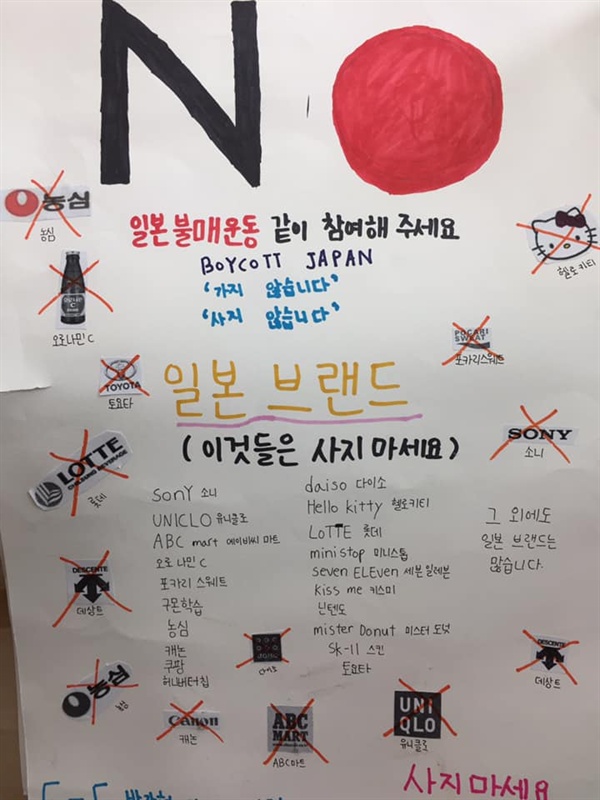 NO
농심
농심
일본불매운동 같이 참여해 주세요
BOYCOTT JAPAN
'가지 않습니다'
'사지 않습니다'
헬로키티
오로나민 C
POCARI SWEAT
포카리스웨트
TOYOTA
토요타
일본 브랜드
(이것들은 사지 마세요)
LOTTE
롯데
SONY
소니
sonY 소니
UNICLO 유니클로
ABC mart 에이비씨 마트
오로나민 C
포카리 스웨트
구몬학습
농심
캐논
쿠팡
허니버터칩
daiso 다이소
Hello kitty 헬로키티
LoTTE 롯데
ministop 미니스톱
seven ELEven 세븐일레븐
kiss me 키스미
닌텐도
mister Donut 미스터도넛
SK-II 스킨
토요타
그 외에도
일본 브랜드는
많습니다.
DESCENTE
데상트
DESCENTE
데상트
농심
농심
Canon
캐논
ABC MART
ABC마트
UNI QLO
유니클로
사지마세요